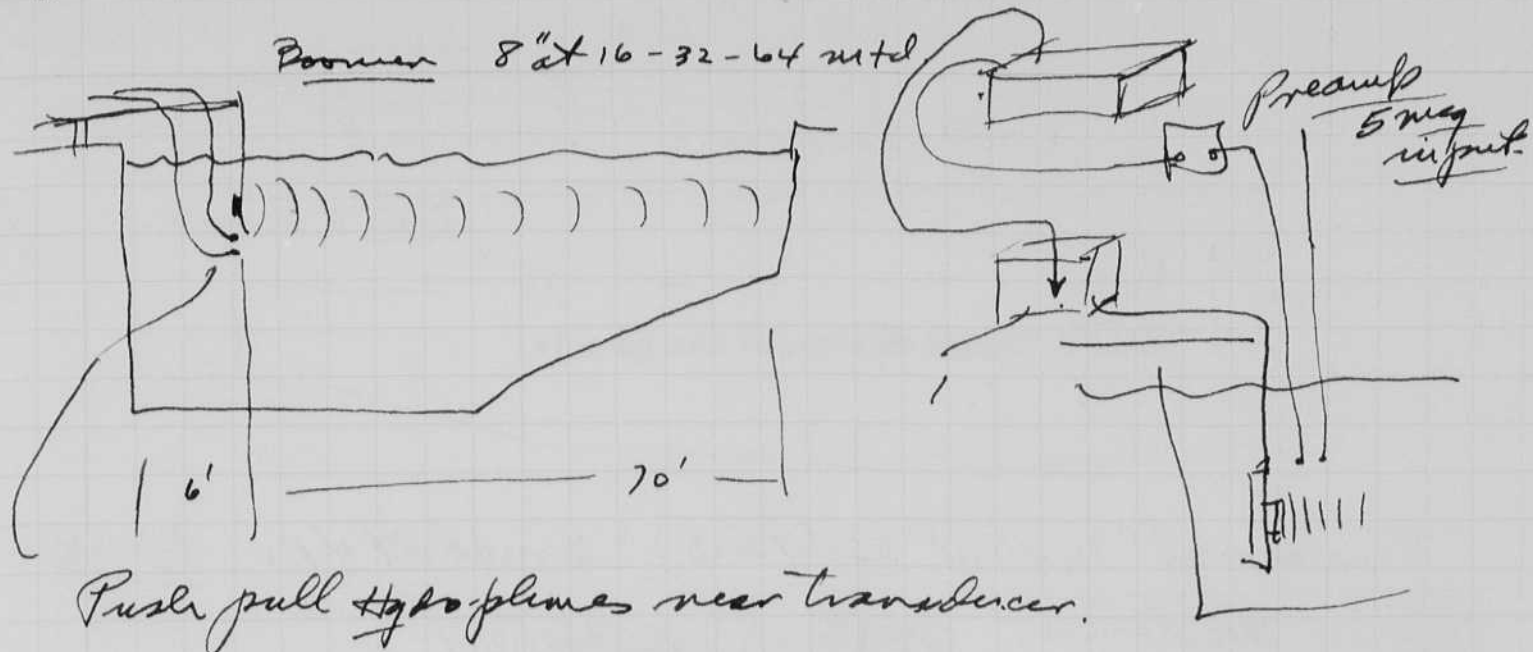 Boomer 8" at 16-32-64 mfd
Preamp
5 meg
input.
6'
70'
Push pull Hydrophones near transducer.